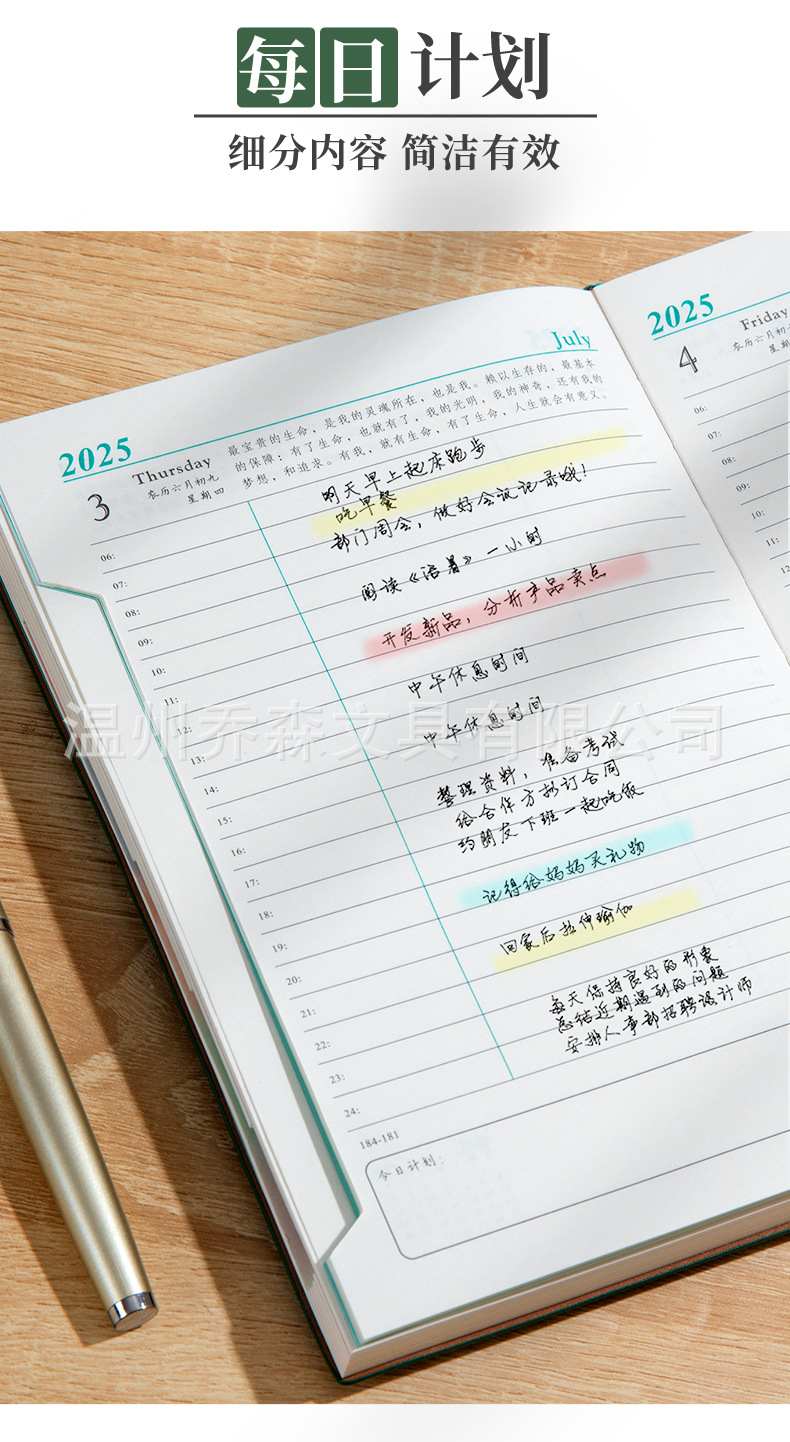 每日计划
细分内容 简洁有效
2025
July
3
Thursday
农历六月初九
星期四
最宝贵的生命，是我的灵魂所在，也是我。赖以生存的，最基本
的保障；有了生命，也就有了，我的光明，我的神奇，还有我的
梦想，和追求。有我，就有生命，有了生命，人生就会有意义。
明天早上起床跑步
吃早餐
部门周会，做好会议记录哦！
阅读《活着》一小时
开发新品，分析产品卖点
中午休息时间
中午休息时间
整理资料，准备考试
给合作方拟订合同
约朋友下班一起吃饭
记得给妈妈买礼物
回家后拉伸瑜伽
每天保持良好的形象
总结近期遇到的问题
安排人事部招聘设计师
06:
07:
08:
09:
10:
11:
12:
13:
14:
15:
16:
17:
18:
19:
20:
21:
22:
23:
24:
184-181
今日计划：
2025
4
Friday
农历六月初
星期
06:
07:
08:
09:
10:
11:
12
温州乔森文具有限公司